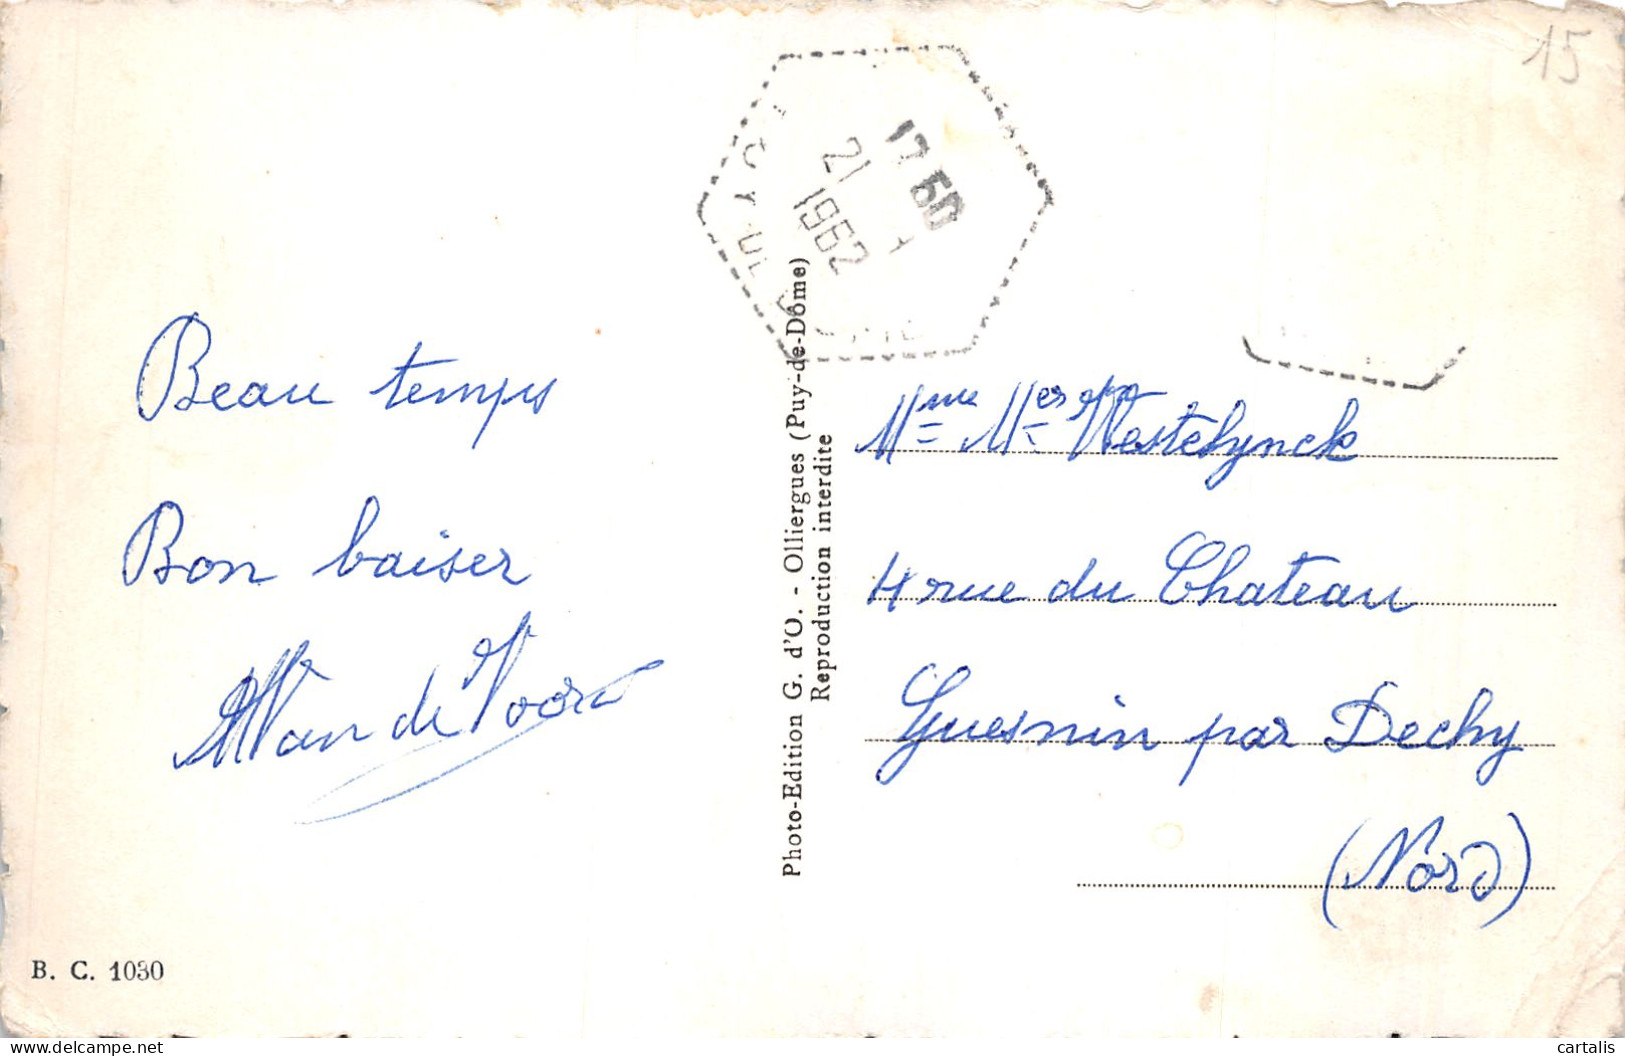 15
17 50
21
1962
Beau temps
Bon baiser
Van de Voord
B. C. 1030
Photo-Edition G. d'O. - Olliergues (Puy-de-Dôme)
Reproduction interdite
Mme Mer Westelynck
4 rue du Chateau
Guesnin par Dechy
(Nord)
cartalis